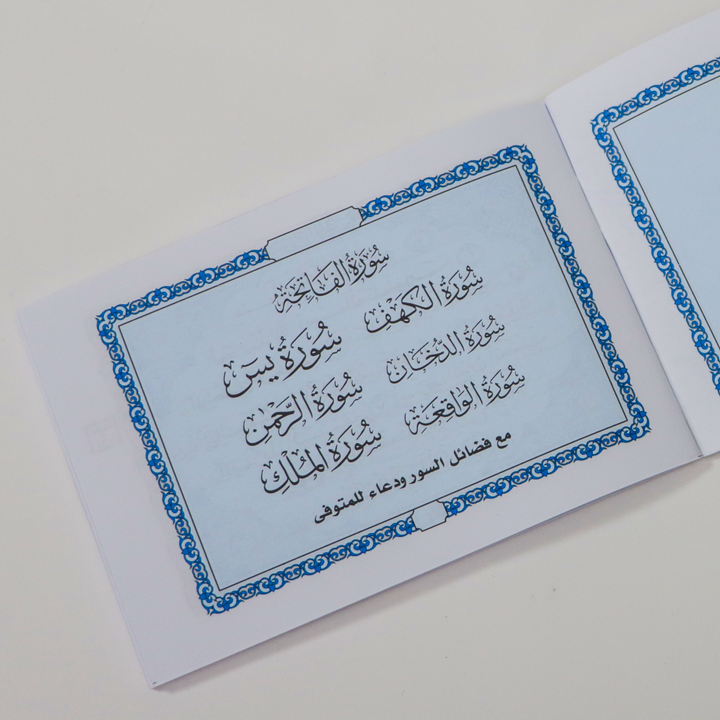 سُورَةُ الفَاتِحَةِ
سُورَةُ الكَهْف سُورَةُ يسٓ
سُورَةُ الدُّخَان سُورَةُ الرَّحْمٰن
سُورَةُ الوَاقِعَة سُورَةُ المُلْكِ
مع فضائل السور ودعاء للمتوفى